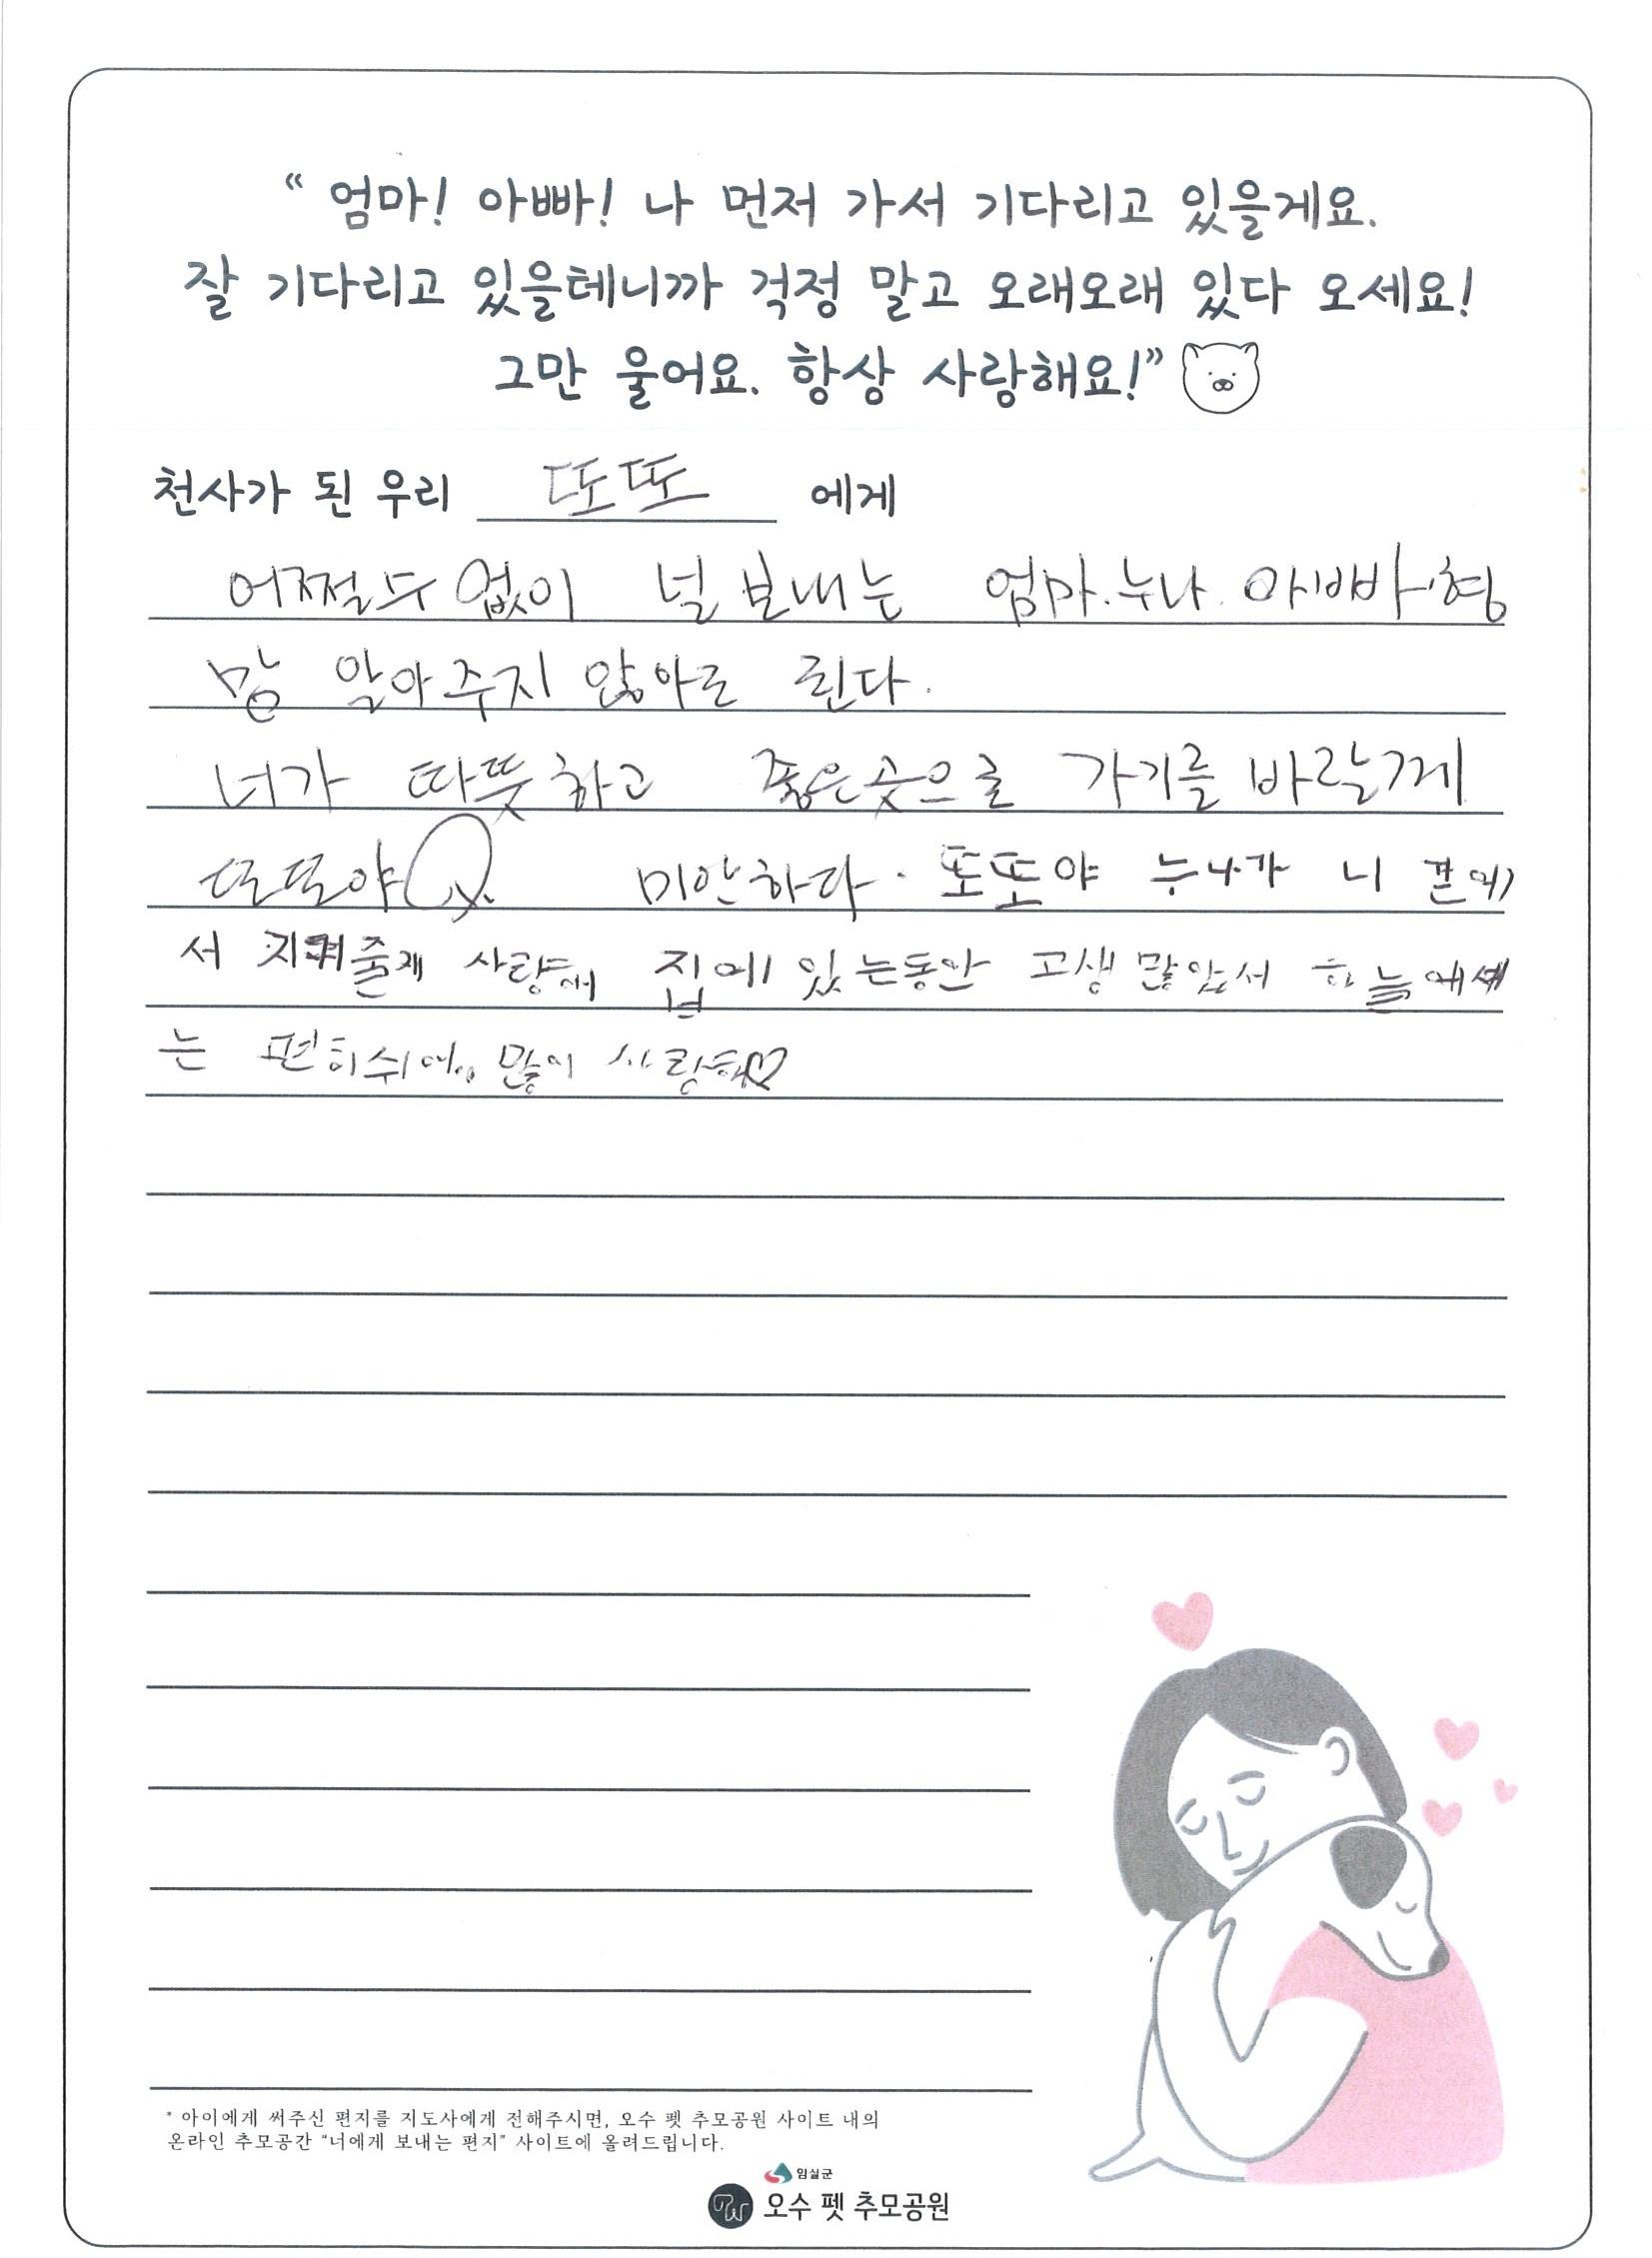 “ 엄마! 아빠! 나 먼저 가서 기다리고 있을게요.
잘 기다리고 있을테니까 걱정 말고 오래오래 있다 오세요!
그만 울어요. 항상 사랑해요!”
천사가 된 우리 또또 에게
어쩔수 없이 널 보내는 엄마.누나.아빠.형
맘 알아주지 않아도 된다.
너가 따뜻하고 좋은곳으로 가기를 바랄께
또또야 미안하다. 또또야 누나가 니 곁에
서 지켜줄게 사랑해 집에 있는동안 고생 많았서 하늘에서
는 편히쉬어.. 많이 사랑해♡
* 아이에게 써주신 편지를 지도사에게 전해주시면, 오수 펫 추모공원 사이트 내의
온라인 추모공간 “너에게 보내는 편지” 사이트에 올려드립니다.
임실군
오수 펫 추모공원